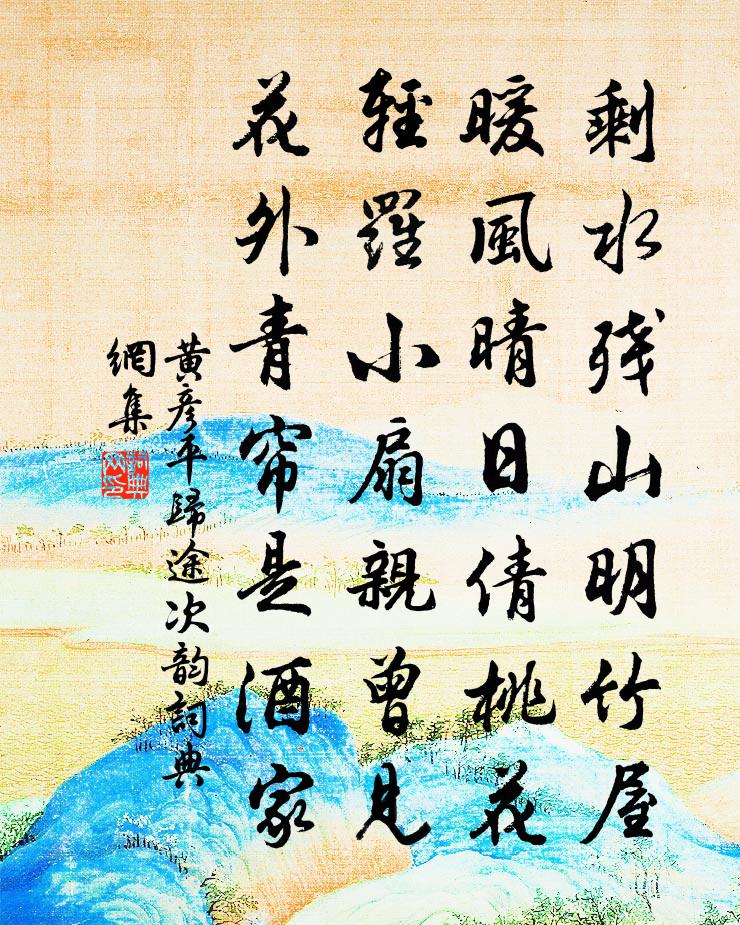 剩水残山明竹屋
暖風晴日倩桃花
輕羅小扇親曾見
花外青帘是酒家
黃彦平歸途次韵詞典
網集
詞典